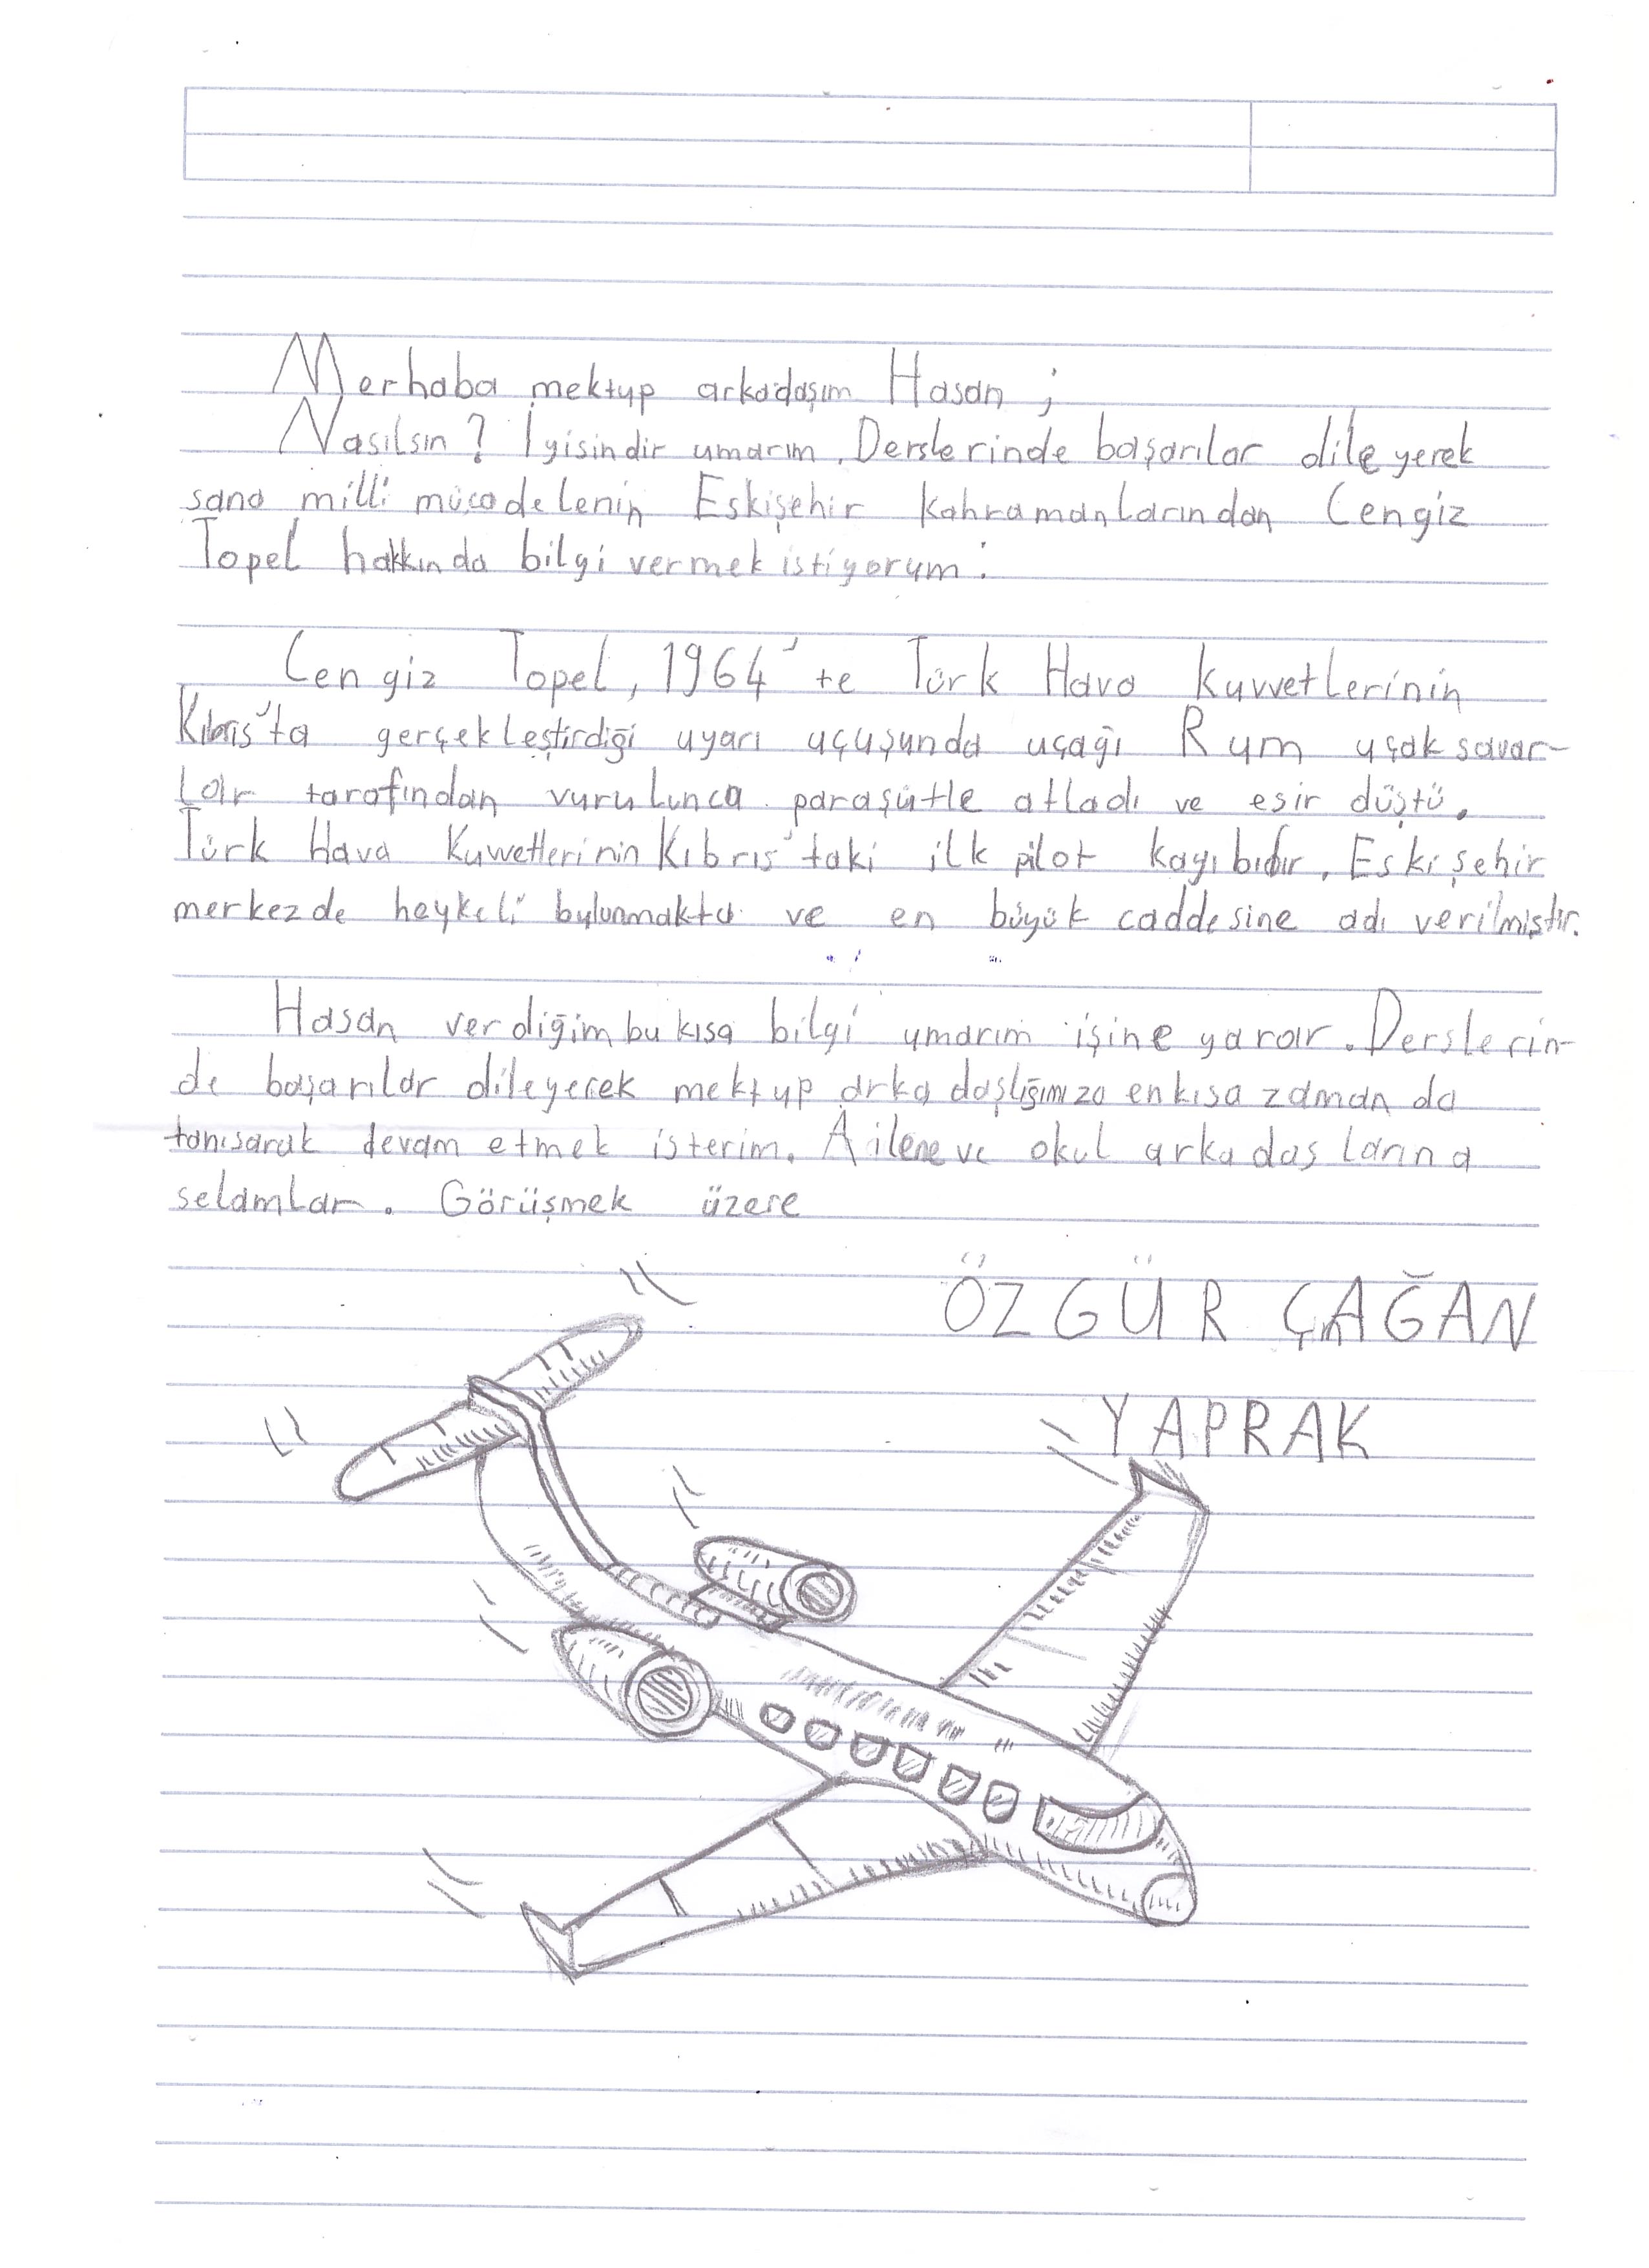 Merhaba mektup arkadaşım Hasan ;
Nasılsın ? İyisindir umarım. Derslerinde başarılar dileyerek
sana milli mücadelenin Eskişehir Kahramanlarından Cengiz
Topel hakkında bilgi vermek istiyorum.
Cengiz Topel, 1964'te Türk Hava Kuvvetlerinin
Kıbrıs'ta gerçekleştirdiği uyarı uçuşunda uçağı Rum uçaksavar-
lar tarafından vurulunca paraşütle atladı ve esir düştü.
Türk Hava Kuvvetlerinin Kıbrıs'taki ilk pilot kayıbıdır. Eskişehir
merkezde heykeli bulunmakta ve en büyük caddesine adı verilmiştir.
Hasan verdiğim bu kısa bilgi umarım işine yarar. Derslerin-
de başarılar dileyerek mektup arkadaşlığımıza en kısa zaman da
tanısarak devam etmek isterim. Ailene ve okul arkadaslarına
selamlar. Görüşmek üzere
ÖZGÜR ÇAĞAN
YAPRAK